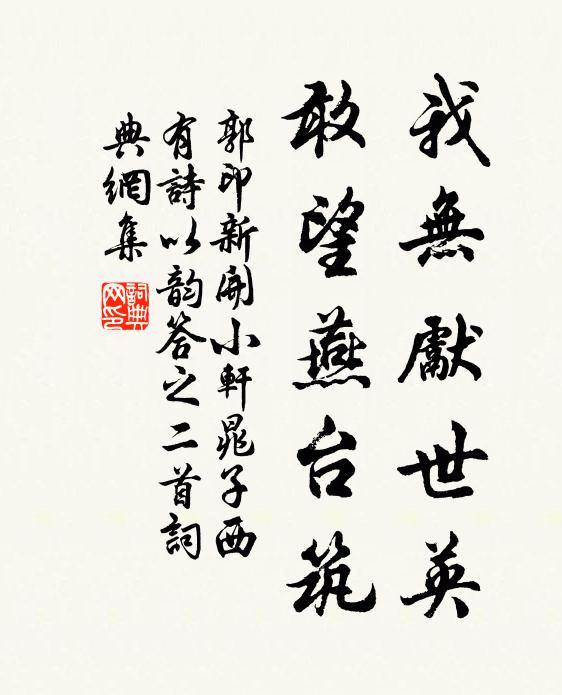 我無獻世英
敢望燕台筑
郭印新開小軒晁子西
有詩以韵答之二首詞
典網集
詞典网印